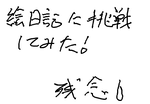 絵日記に挑戦
してみた!
残念!